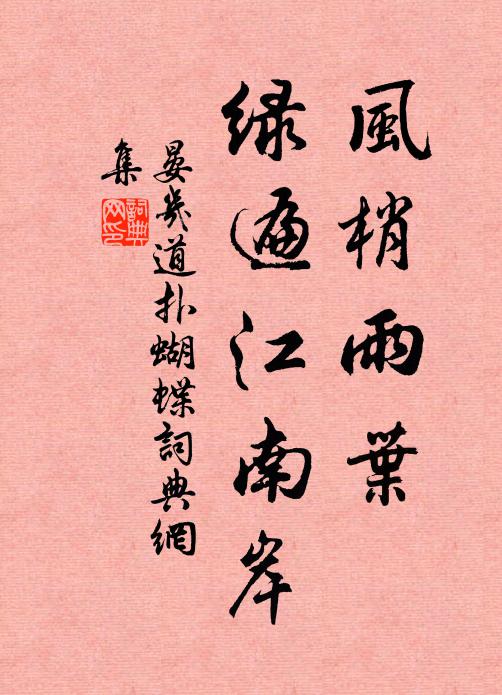 風梢雨葉
緑遍江南岸
晏幾道扑蝴蝶詞典網
集
詞典
网印